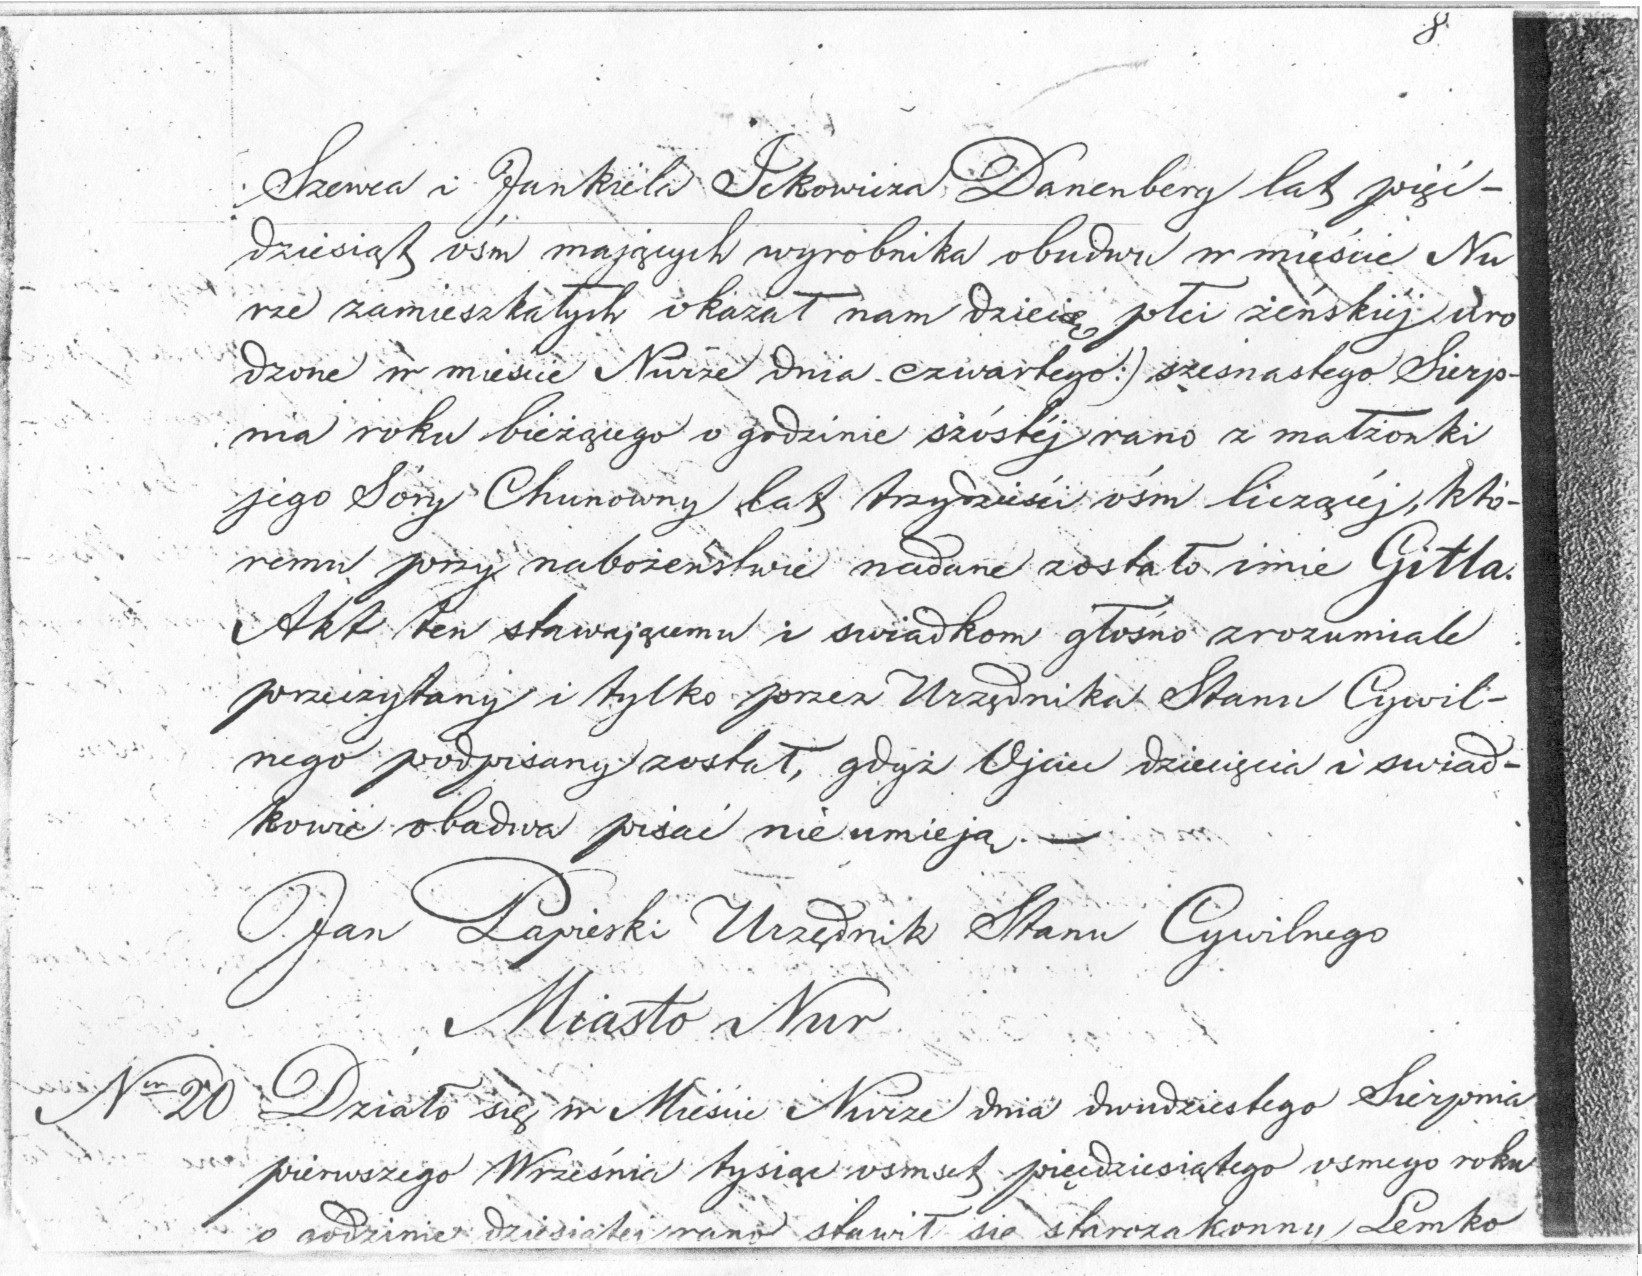 8
Szewca i Jankiela Ickowicza Danenberg lat pięć-
dziesiąt ośm mających wyrobnika obudwu w mieście Nu
rze zamieszkałych okazał nam dziecię płci żeńskiéj uro
dzone w mieście Nurze dnia czwartego :/ szesnastego Sierp-
nia roku bieżącego o godzinie szóstéj rano z małżonki
jego Sóry Chunowny lat trzydzieści ośm liczącéj, któ-
remu przy nabożeństwie nadane zostało imie Gitla.
Akt ten stawającemu i swiadkom głośno zrozumiale
przeczytany i tylko przez Urzędnika Stanu Cywil-
nego podpisany został, gdyż Ojciec dziecięcia i swiad-
kowie obadwa pisać nie umieją. —
Jan Łapieski Urzędnik Stanu Cywilnego
Miasto Nur
Nm 20 Działo się w Mieście Nurze dnia dwudziestego Sierpnia
pierwszego Września tysiąc osmset pięćdziesiątego osmego roku
o godzinie dziesiątéj rano stawił się starozakonny Lemko